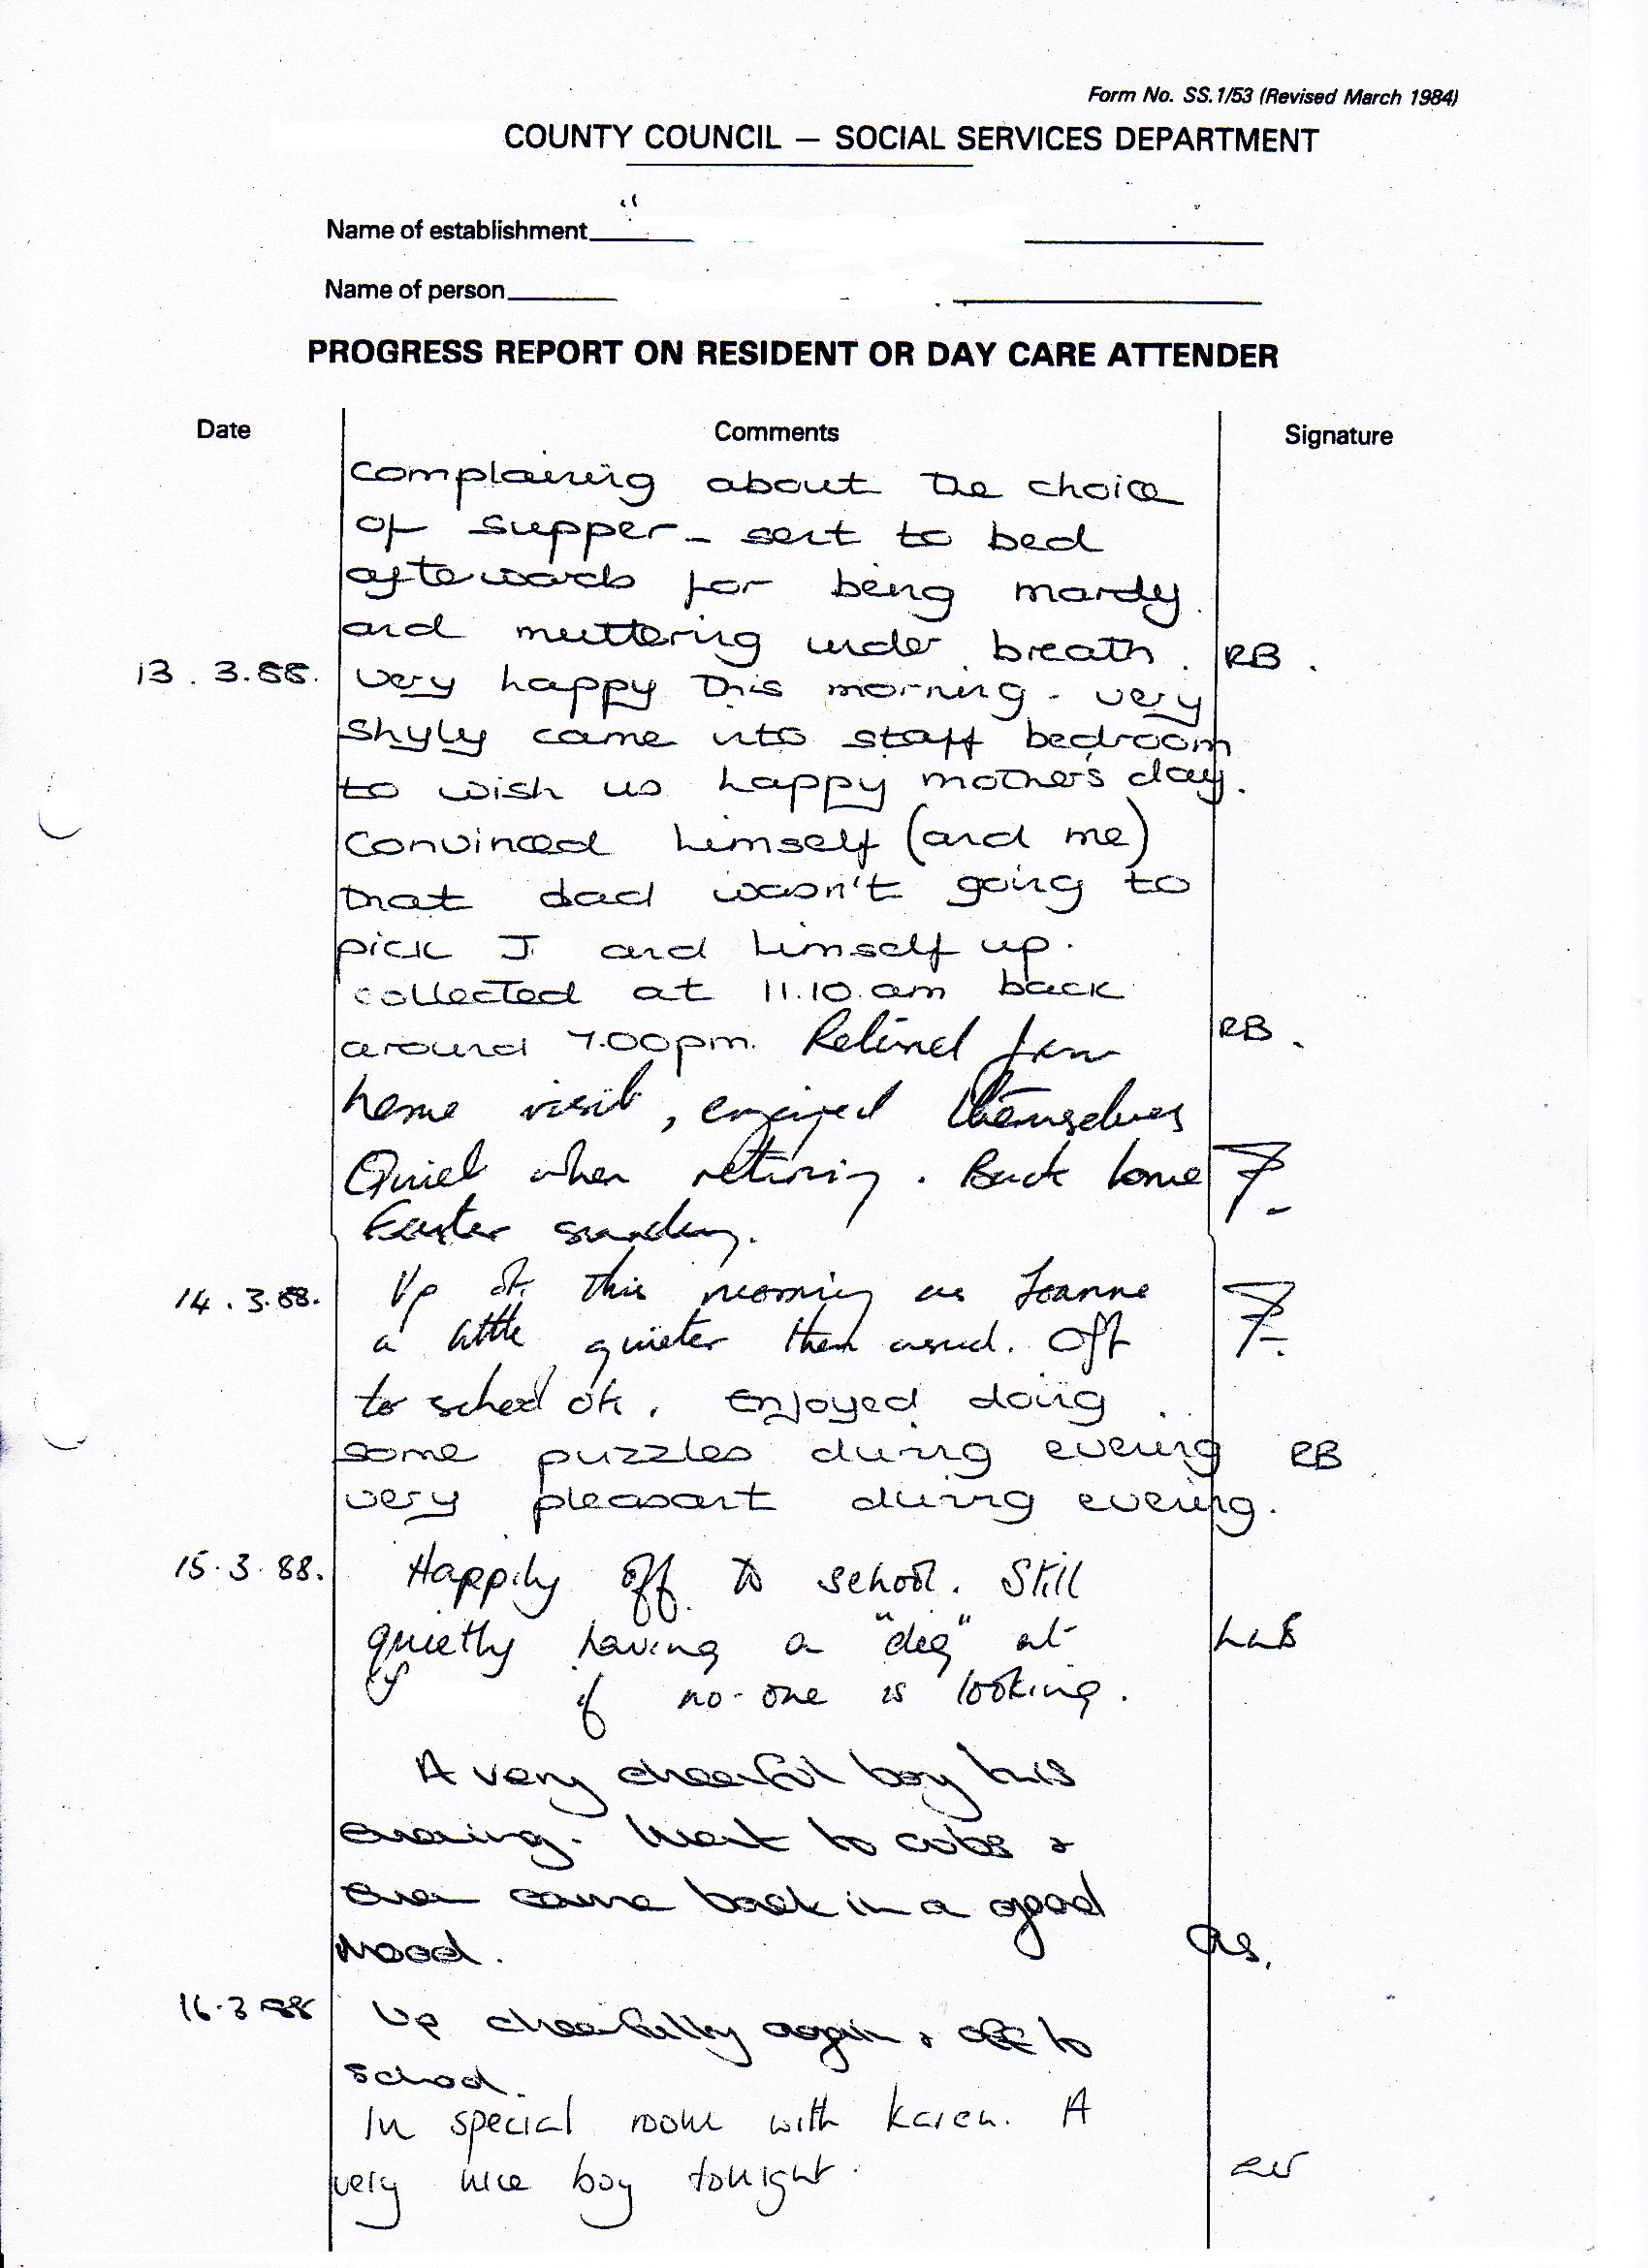 Form No. SS.1/53 (Revised March 1984)
COUNTY COUNCIL — SOCIAL SERVICES DEPARTMENT
Name of establishment
Name of person
PROGRESS REPORT ON RESIDENT OR DAY CARE ATTENDER
Date Comments Signature
complaining about the choice
of supper - sent to bed
afterwards for being mardy
and muttering under breath. RB.
13.3.88. very happy this morning. very
shyly came into staff bedroom
to wish us happy mother's day.
Convinced himself (and me)
that dad wasn't going to
pick J and himself up.
collected at 11.10.am back
around 7.00pm. Retined from RB.
home visit, enjoyed themselves
Quiet when retiring. Back home
Easter sunday.
14.3.88. Up ok this morning as Joanne
a little quieter then usual. Off
to school ok. Enjoyed doing
some puzzles during evening RB
very pleasant during evening.
15.3.88. Happily off to school. Still
quietly having a "dig" at
if no-one is looking.
A very cheerful boy this
evening. Went to cubs &
even came back in a good
mood. As.
16.3.88 Up cheerfully again & off to
school.
In special room with Karen. A
very nice boy tonight.